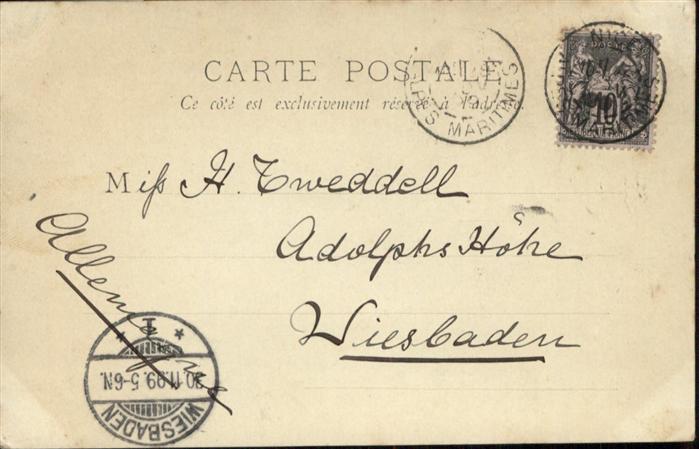 CARTE POSTALE
Ce côté est exclusivement réservé à l'adresse
NICE
ALPES MARITIMES
10
Miss H. Tweddell
Adolphs Höhe
Wiesbaden
Allemagne
WIESBADEN
30.11.99.5-6N.